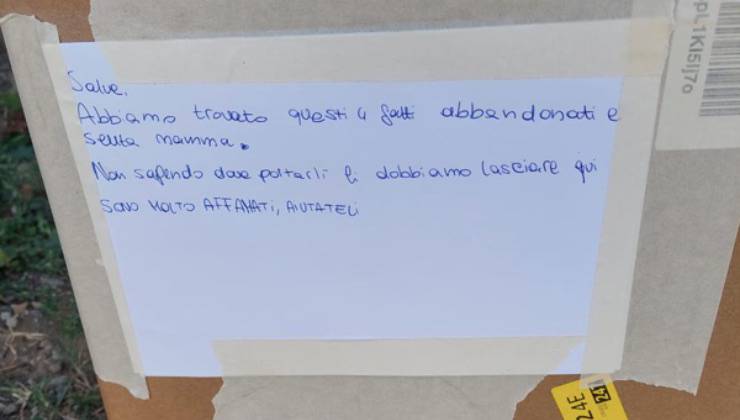 Salve,
Abbiamo trovato questi 4 gatti abbandonati e
senza mamma.
Non sapendo dove portarli li dobbiamo lasciare qui
SONO MOLTO AFFAMATI, AIUTATELI
24E
24